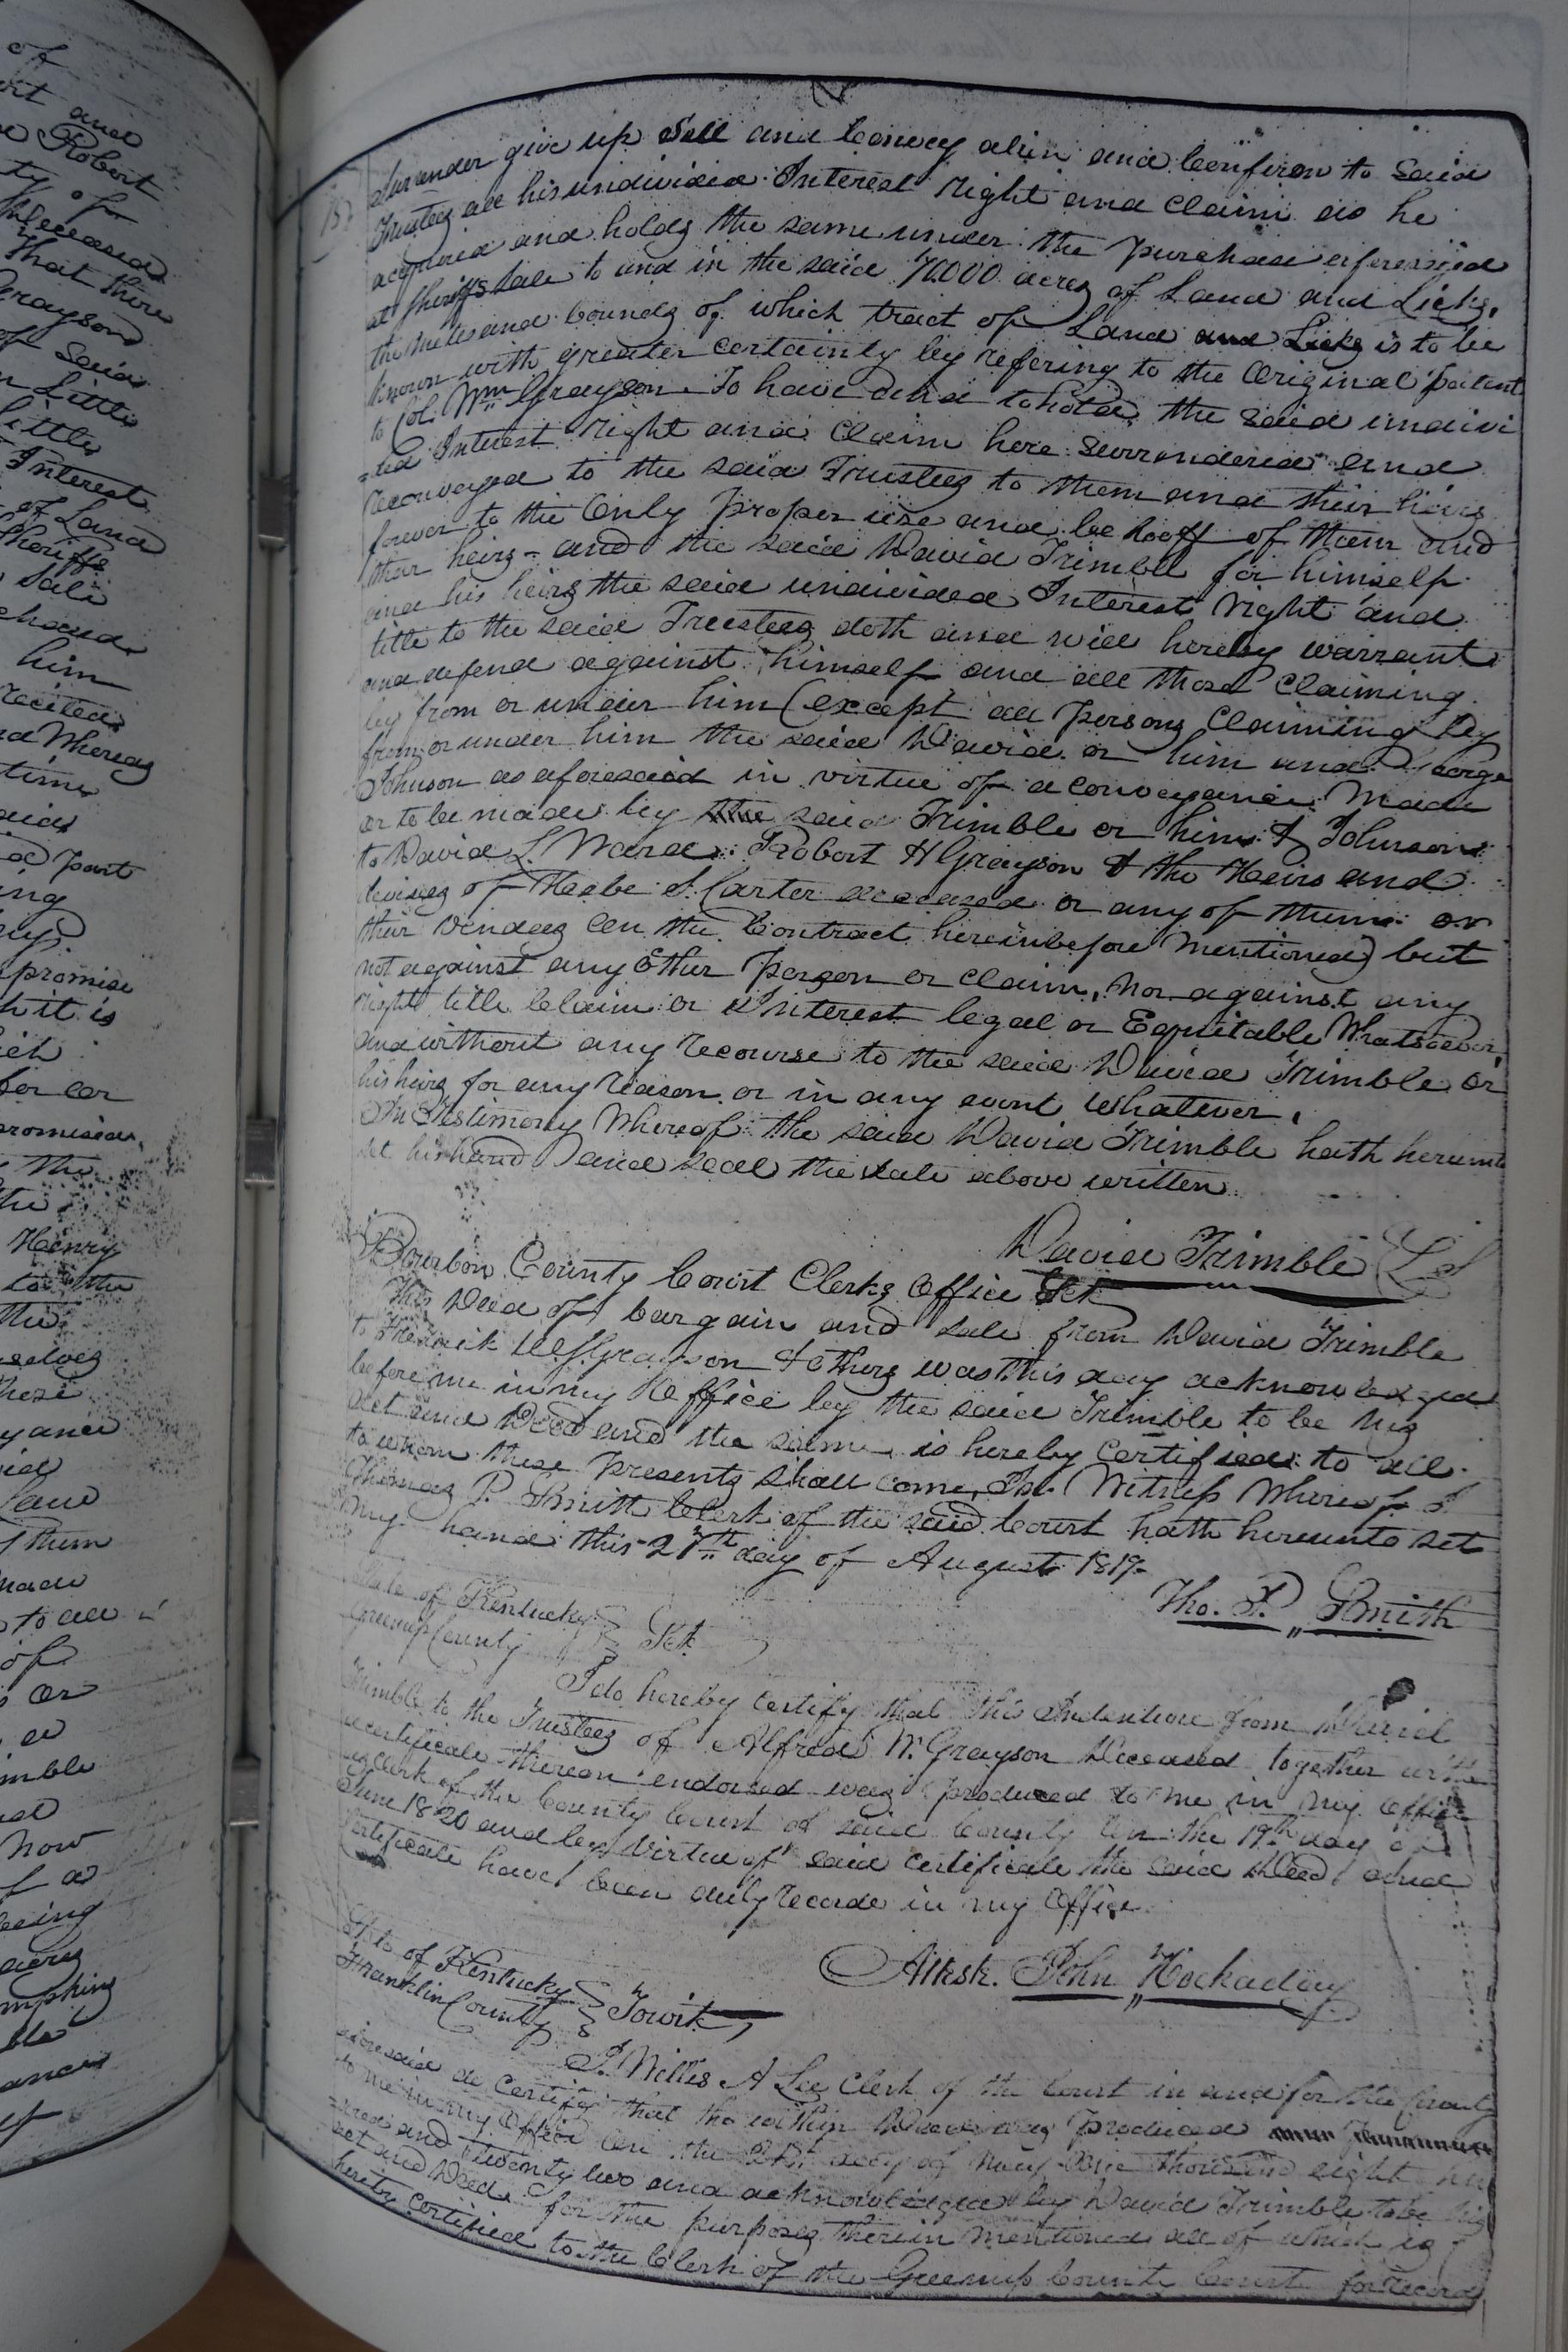 of
and
Robert
ty of
deceased
That there
Grayson
of Said
Little
Little
Interest
of Land
Sheriffs
Sale
him
recited
Whereas
time
part
ing
promise
it is
for
promised
the
Henry
to the
the
selves
these
yance
Land
them
made
to all
of
or
imble
now
of a
being
acres
ble
ances
Surrender give up Sell and Convey alien and Confirm to Said
Trustees all his undivided Interest right and Claim as he
acquired and holds the same under the purchase aforesaid
at Sheriffs Sale to and in the said 70000 acres of Land and Licks,
the mets and bounds of which tract of Land and Licks is to be
known with greater certainty by refering to the Original patent
to Col. Wm Grayson. To have and to hold the said undivi
=ded Interest right and Claim here Surrendered and
reconveyed to the said Trustees to them and their heirs
forever to the Only proper use and behooff of them and
their heirs - and the said David Trimble for himself
and his heirs the said undivided Interest right and
title to the said Trustees doth and will hereby warrant
and defend against himself and all those Claiming
by from or under him (except all persons Claiming by
from or under him the said David or him and George
Johnson as aforesaid in virtue of a conveyance made
or to be made by the said Trimble or him & Johnson
to David L. Ward Robert H Grayson & the Heirs and
devisees of Heabe S. Carter deceased or any of them or
their Vendees on the Contract hereinbefore mentioned) but
not against any Other person or claim, nor against any
right title Claim or Interest legal or Equitable Whatsoever,
and without any recourse to the said David Trimble or
his heirs for any reason or in any event whatever.
In Testimony Whereof the said David Trimble hath hereunto
set his hand and seal the date above written
David Trimble LS
Bourbon County Court Clerks Office Sct
This Deed of bargain and sale from David Trimble
to Grayson & Others was this day acknowledged
before me in my Office by the said Trimble to be his
act and Deed and the same is hereby certified to all
to whom these presents shall come, In Witness Whereof I
Thomas P. Smith Clerk of the said Court hath hereunto set
my hand this 27th day of August 1819
Tho. P. Smith
State of Kentucky
Greenup County } Sct
I do hereby certify that this Indenture from David
Trimble to the Trustees of Alfred W. Grayson Deceased together with
certificate thereon endorsed was produced to me in my Office
as Clerk of the County Court of said County On the 19th day of
June 1820 and by Virtue of said certificate the said Deed and
Certificate have been duly recorde in my Office.
Attest. John Hockaday
State of Kentucky
Franklin County } Towit,
I. Willis A Lee Clerk of the Court in and for the County
aforesaid do certify that the within Deed was produced
to me in my Office On the 21st day of May One thousand eight hun
dred and twenty two and acknowledged by David Trimble to be his
act and Deed for the purposes therein mentioned all of which is
hereby certified to the Clerk of the Greenup County Court for record